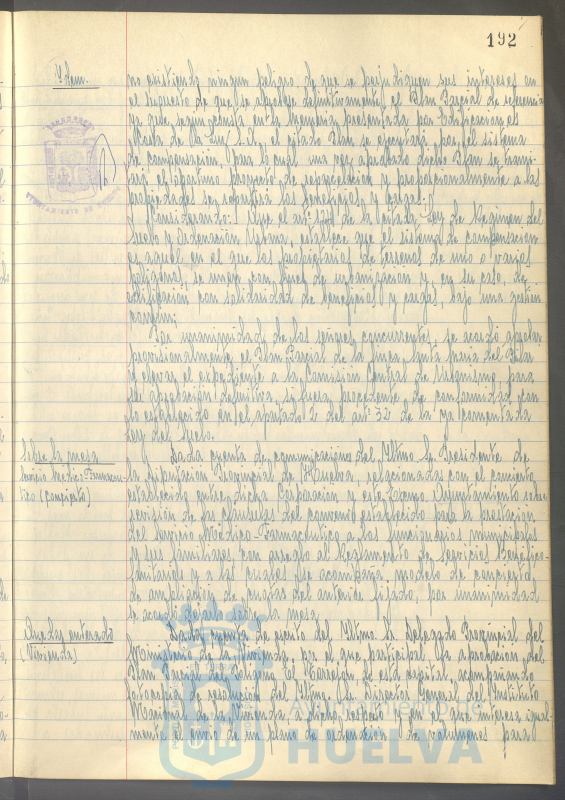 192
Idem.
no existiendo ningun peligro de que se perjudiquen sus intereses en
el supuesto de que se apruebe definitivamente el Plan Parcial de referencia
ya que segun consta en la Memoria presentada por Edificaciones
S.A. el citado Plan se ejecutará por el sistema
de compensación, para lo cual una vez aprobado dicho Plan se trami-
tará el oportuno proyecto de reparcelación y proporcionalmente a las
propiedades se repartirá los beneficios y cargas.
Considerando: Que el artº de la citada Ley de Regimen del
Suelo y Ordenación Urbana, establece que el sistema de compensacion
es aquel en el que los propietarios de terreno de uno o varios
poligonos, se unen con fines de urbanización y en su caso, de
edificación con solidaridad de beneficios y cargas, bajo una gestión
comun;
Por unanimidad de los señores concurrentes, se acordó aprobar
provisionalmente el Plan Parcial de la finca Santa Maria del Pilar
y elevar el expediente a la Comision Central de Urbanismo, para
su aprobación definitiva, si fuera procedente, de conformidad con
lo establecido en el apartado 2 del artº 32 de la ya comentada
Ley del Suelo.
Sobre la mesa
Servicio Medico-Farmaceu-
tico (concierto)
Dada cuenta de comunicaciones del Iltmo. Sr. Presidente de
la Diputación Provincial de Huelva, relacionadas con el concierto
establecido entre dicha Corporacion y este Excmo. Ayuntamiento sobre
revisión de las clausulas del convenio establecido para la prestación
del Servicio Médico-Farmaceutico a los funcionarios municipales
y sus familiares, con arreglo al Reglamento de Servicios Benefico-
Sanitarios y a las cuales se acompaña modelo de concierto
de ampliación de cuotas del anterior fijado, por unanimidad
se acordó dejarlo sobre la mesa.
Quedar enterado
(Vivienda)
Dada cuenta de escrito del Iltmo. Sr. Delegado Provincial del
Ministerio de la Vivienda, por el que participa la aprobacion del
Plan Parcial del poligono El Torrejón, de esta capital, acompañando
fotocopia de resolución del Iltmo. Sr. Director General del Instituto
Nacional de la Vivienda a dicho respecto y en el que interesa igual-
mente el envio de un plano de ordenación de volumenes para
AYUNTAMIENTO DE HUELVA
Ayuntamiento de
HUELVA